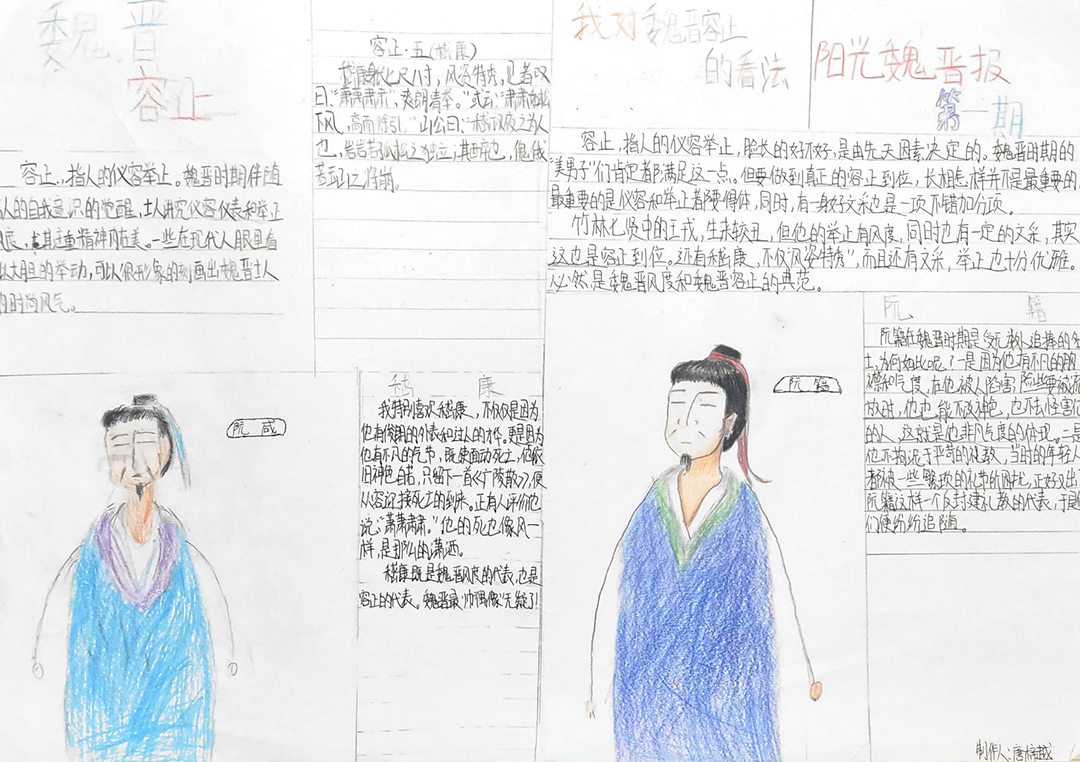 魏晋
容止
容止,指人的仪容举止。魏晋时期伴随
人的自我意识的觉醒,士人讲究仪容仪表和举止
风度,尤其注重精神而美。一些在现代人眼里看
以大胆的举动,可以很形象的刻画出魏晋士人
的时尚风气。
容止·五(嵇康)
嵇康身长七尺八寸,风姿特秀。见者叹
曰:“萧萧肃肃,爽朗清举。”或云:“肃肃如松
下风,高而徐引。”山公曰:“嵇叔夜之为人
也,岩岩若孤松之独立;其醉也,傀俄
若玉山之将崩。
我对魏晋容止
的看法
阳光魏晋报
第一期
容止,指人的仪容举止,脸长的好不好,是由先天因素决定的。魏晋时期的
“美男子”们肯定都满足这一点。但要做到真正的容止到位,长相怎样并不是最重要的
最重要的是仪容和举止都要得体,同时,有一身好文采也是一项不错加分项。
竹林七贤中的王戎,生来较丑,但他的举止有风度,同时也有一定的文采,其实
这也是容止到位。还有嵇康,不仅“风姿特秀”,而且还有文采,举止也十分优雅。
必然是魏晋风度和魏晋容止的典范。
阮咸
嵇 康
我特别喜欢嵇康,不仅仅是因为
他有俊朗的外表和过人的才华。更是因为
他有不凡的气节,既使面动死亡,他依
旧神色自若,只留下一首《广陵散》,便
从容迎接死亡的到来。正有人评价他
说:“萧萧肃肃。”他的死也像风一
样,是那么的潇洒。
嵇康既是魏晋风度的代表,也是
容止的代表。魏晋最“帅偶像”无疑了!
阮籍
阮 籍
阮籍在魏晋时期是受无数人追捧的
士,为何如此呢?一是因为他有不凡的胸
襟和气度,在他被人陷害,险些要被
故时,他也能不改神色,也不去怪害他
的人,这就是他非凡气度的体现。二是
他不拘泥于严苛的礼教,当时的年轻人
都被一些繁琐的礼节所困扰,正好又出
阮籍这样一个反封建礼教的代表,于是
们便纷纷追随。
制作人:唐梓越